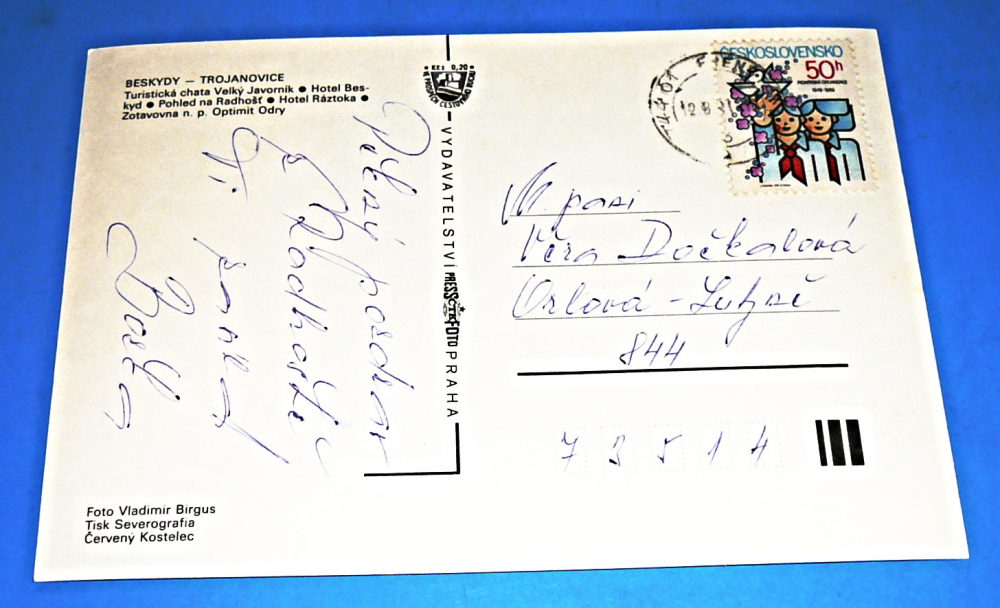 BESKYDY — TROJANOVICE
Turistická chata Velký Javorník ● Hotel Bes-
kyd ● Pohled na Radhošť ● Hotel Ráztoka ●
Zotavovna n. p. Optimit Odry
Kčs 0,20
VYDAVATELSTVÍ PRESSFOTO PRAHA
ČTK
Pěkný pozdrav
z Radhoště
ČESKOSLOVENSKO
50h
PIONÝRSKÁ ORGANIZACE
1949-1989
744 01
M. paní
Věra Dočkalová
Orlová - Lutyně
844
7 3 5 1 4
Foto Vladimir Birgus
Tisk Severografia
Červený Kostelec